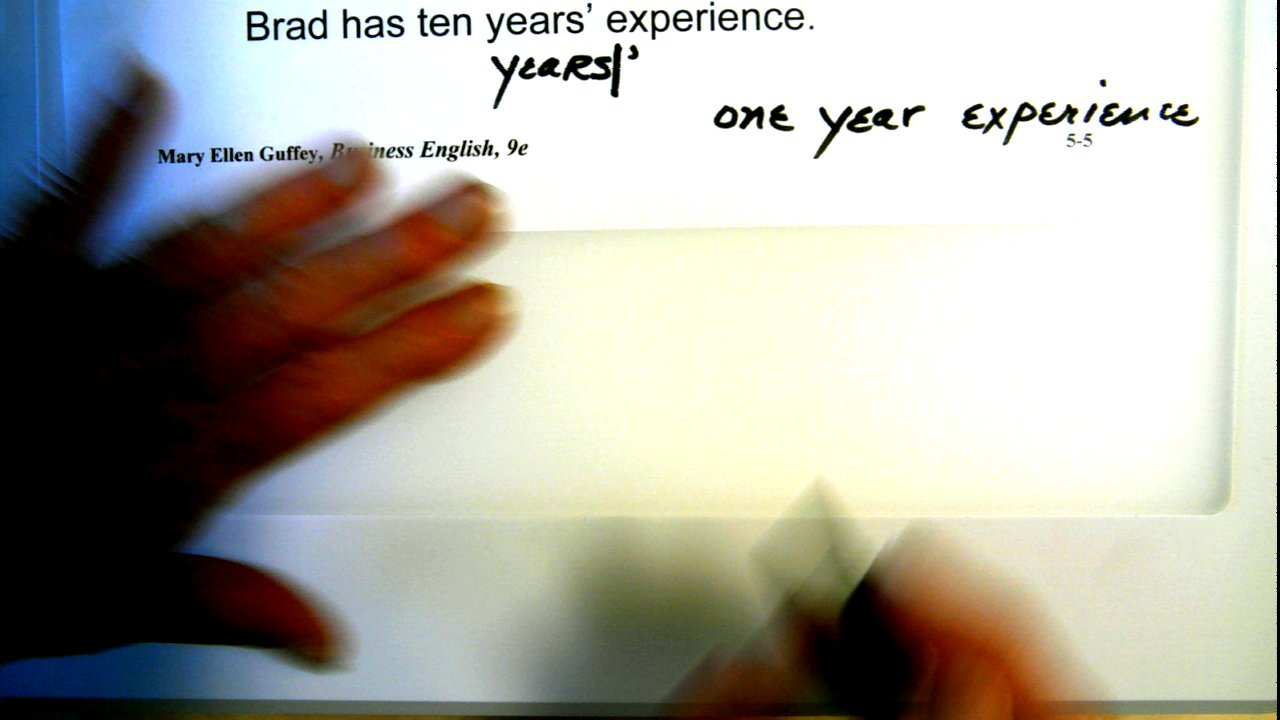 Brad has ten years’ experience.
years|’
one year experience
Mary Ellen Guffey, Business English, 9e
5-5